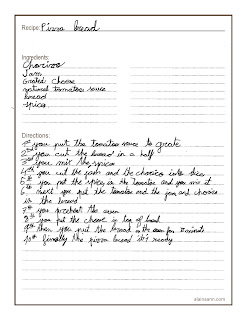 Recipe: Pizza bread
Ingredients:
Chorizo
Jam
Grated cheese
natural tomatoes sauce
bread
spices
Directions:
1st you put the tomatoes sauce to
2nd you cut the bread in a half
3rd you mix the spices
4th you cut the jam and the chorizo into
5th you put the spices in the tomatoe and you mix it
6th next you put the tomatoe and the jam and chorizo
in the bread
7th you preheat the oven
8th you put the cheese in top of bread
9th then you put the bread in the oven for minuts
10th finally the pizza bread it's ready
alainaann.com